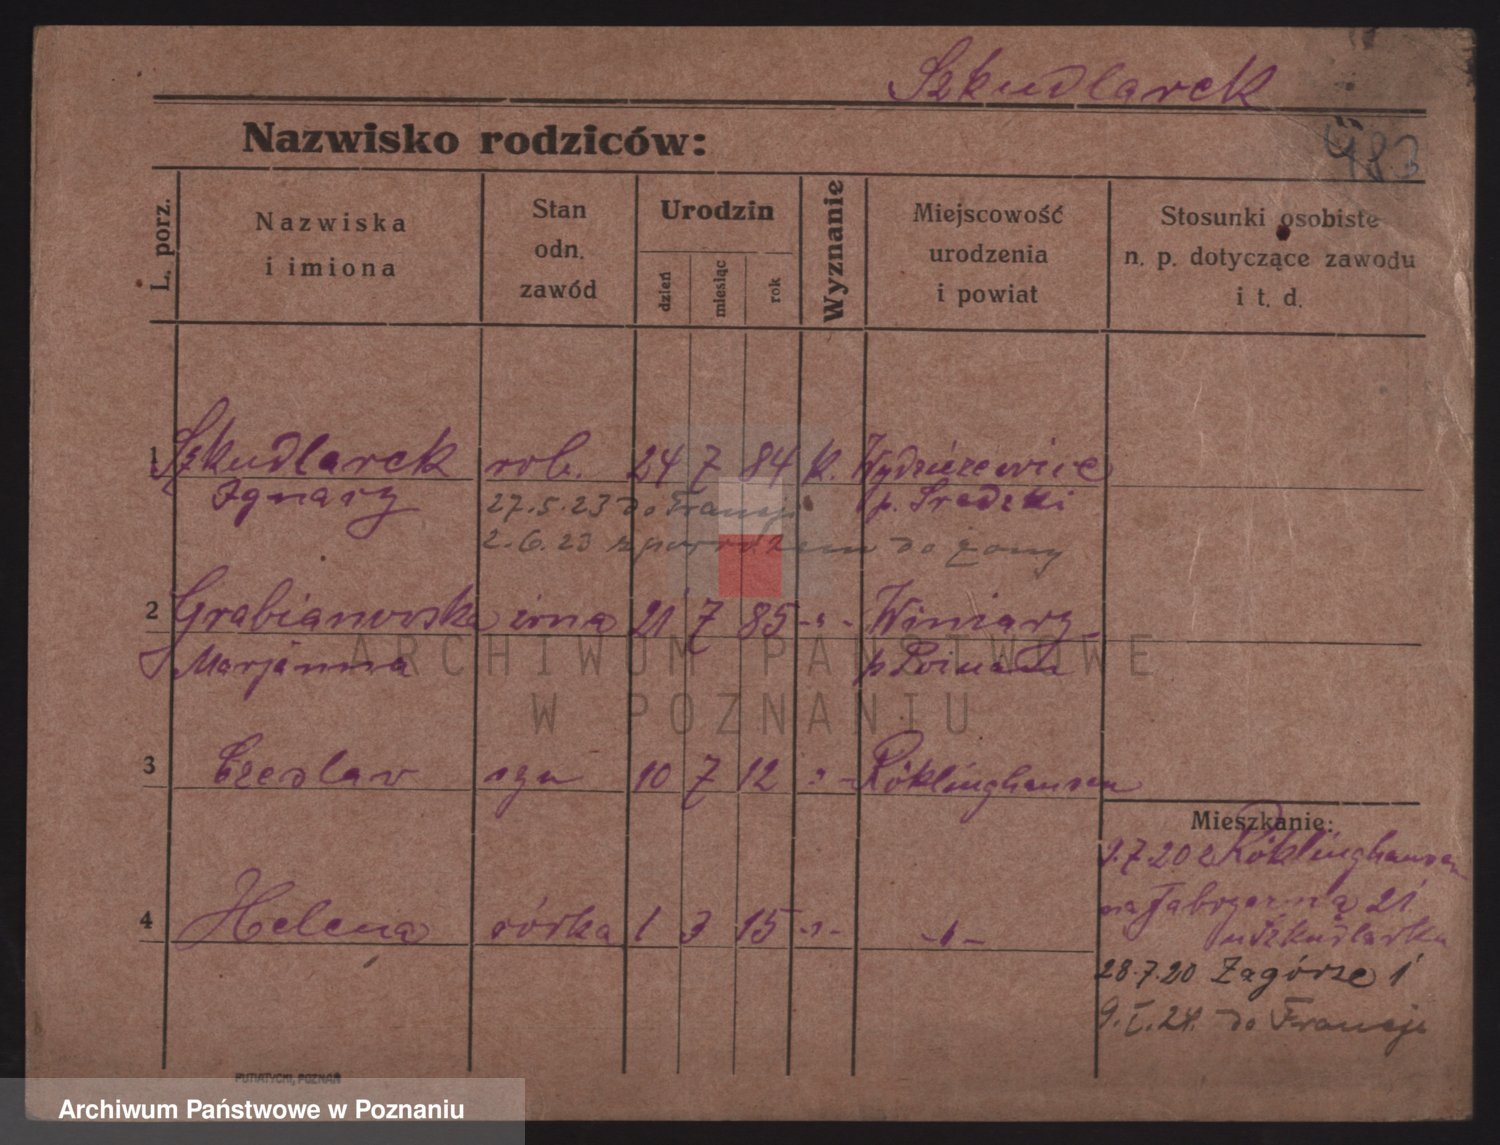 Szkudlarek
483
Nazwisko rodziców:
L. porz.
Nazwiska
i imiona
Stan
odn.
zawód
Urodzin
dzień
miesiąc
rok
Wyznanie
Miejscowość
urodzenia
i powiat
Stosunki osobiste
n. p. dotyczące zawodu
i t. d.
1 Szkudlarek rob. 24 7 84 k.
Ignacy p. Sredzki
27.5.23 do Francji
2.6.23 z powrotem do żony
2 Grabianowska żona 21 7 85 -„- Winiary
Marjanna p
3 Czeslav syn 10 7 12 -„- Röklinghausen
4 Helena córka 1 3 15 -„- -„-
Mieszkanie:
9.7.20 z Röklinghausen
na Fabryczną 21
u Szkudlarka
28.7.20 Zagórze 1
9.I.24. do Francji
PUTIATYCKI, POZNAŃ
ARCHIWUM PAŃSTWOWE
W POZNANIU
Archiwum Państwowe w Poznaniu